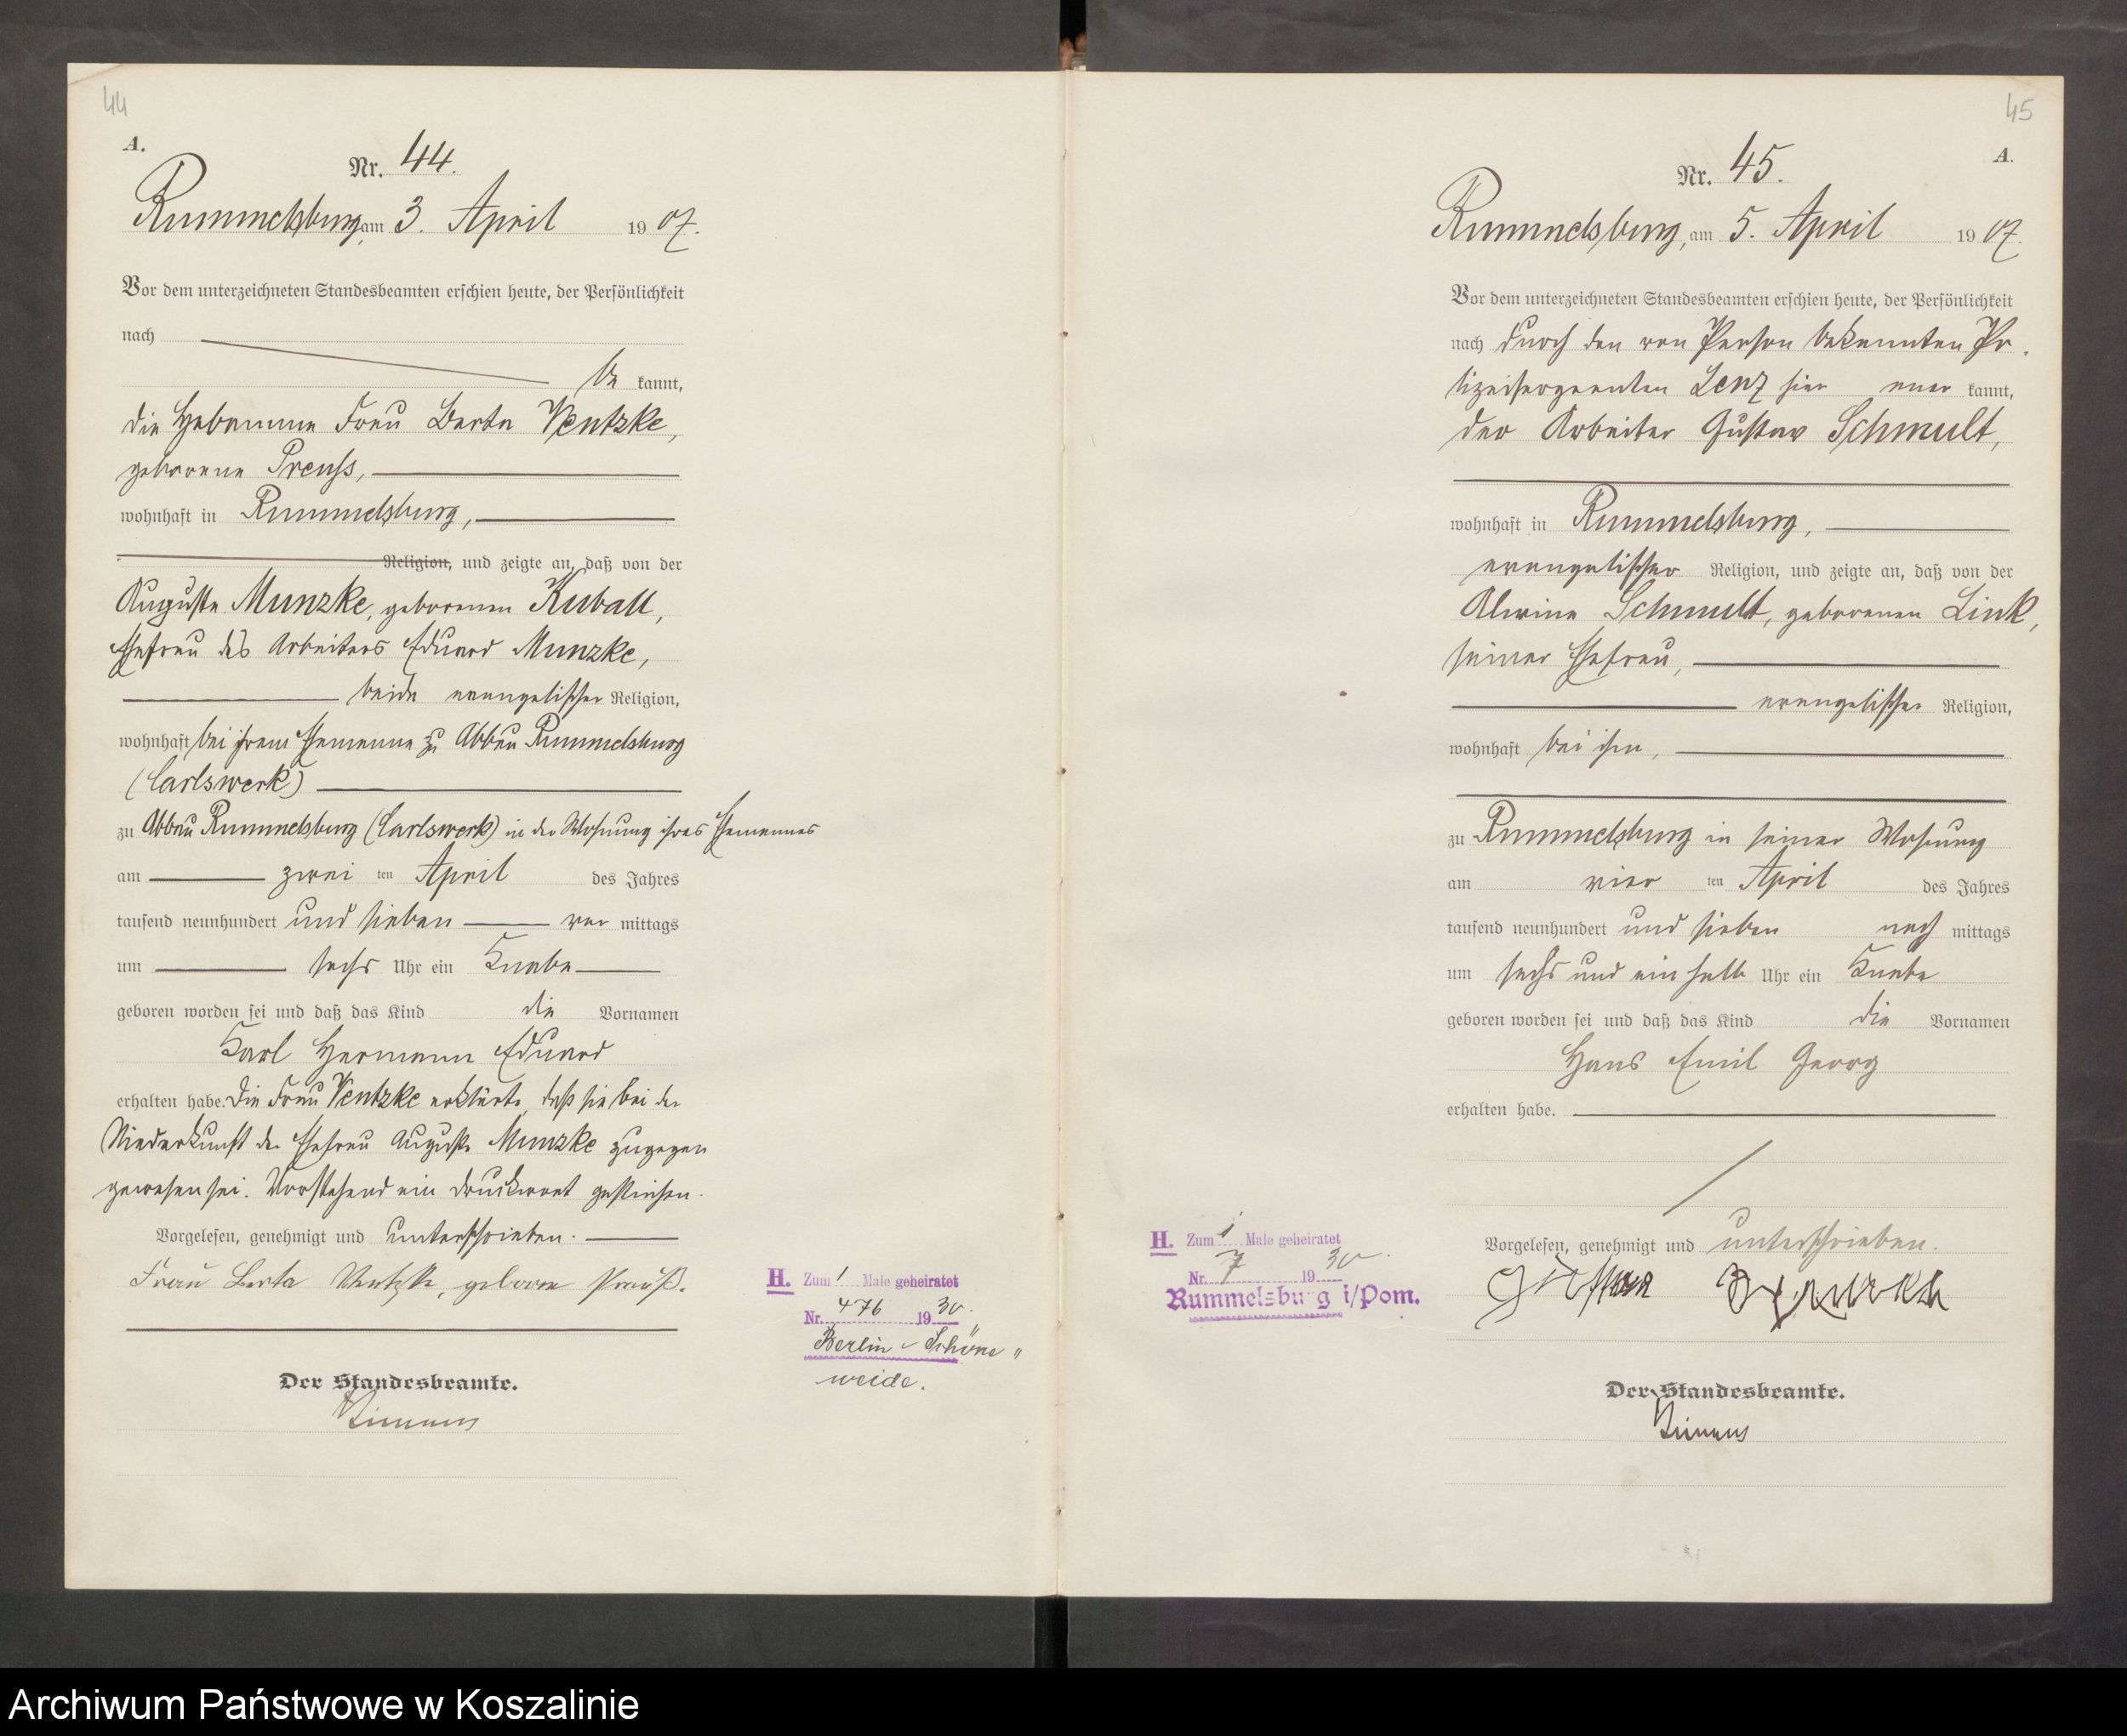 44
A.
Nr. 44.
Rummelsburg, am 3. April 1907.
Vor dem unterzeichneten Standesbeamten erschien heute, der Persönlichkeit
nach
be kannt,
die Hebamme Frau Berta Ventzke,
geborene Preuß,
wohnhaft in Rummelsburg,
Religion, und zeigte an, daß von der
Auguste Munzke, geborenen Kuball,
Ehefrau des Arbeiters Eduard Munzke,
beide evangelischer Religion,
wohnhaft bei ihrem Ehemanne zu Abbau Rummelsburg
(Carlswerk)
zu Abbau Rummelsburg (Carlswerk) in der Wohnung ihres Ehemannes
am zwei ten April des Jahres
tausend neunhundert und sieben vor mittags
um sechs Uhr ein Knabe
geboren worden sei und daß das Kind die Vornamen
Karl Hermann Eduard
erhalten habe. Die Frau Ventzke erklärte, daß sie bei der
Niederkunft der Ehefrau Auguste Munzke zugegen
gewesen sei. Vorstehend ein Druckwort gestrichen.
Vorgelesen, genehmigt und unterschrieben.
Frau Berta Ventzke, geborene Preuß.
Der Standesbeamte.
H. Zum 1 Male geheiratet
Nr. 476 1930.
Berlin-Schöne"
weide.
45
A.
Nr. 45.
Rummelsburg, am 5. April 1907.
Vor dem unterzeichneten Standesbeamten erschien heute, der Persönlichkeit
nach durch den von Person bekannten Po-
lizeisergeanten Lenz hier aner kannt,
der Arbeiter Gustav Schmult,
wohnhaft in Rummelsburg,
evangelischer Religion, und zeigte an, daß von der
Alwine Schmult, geborenen Link,
seiner Ehefrau,
evangelischer Religion,
wohnhaft bei ihm,
zu Rummelsburg in seiner Wohnung
am vier ten April des Jahres
tausend neunhundert und sieben nach mittags
um sechs und ein halb Uhr ein Knabe
geboren worden sei und daß das Kind die Vornamen
Hans Emil Georg
erhalten habe.
Vorgelesen, genehmigt und unterschrieben.
Gustav
Der Standesbeamte.
H. Zum 1 Male geheiratet
Nr. 7 1930.
Rummelsburg i/Pom.
Archiwum Państwowe w Koszalinie